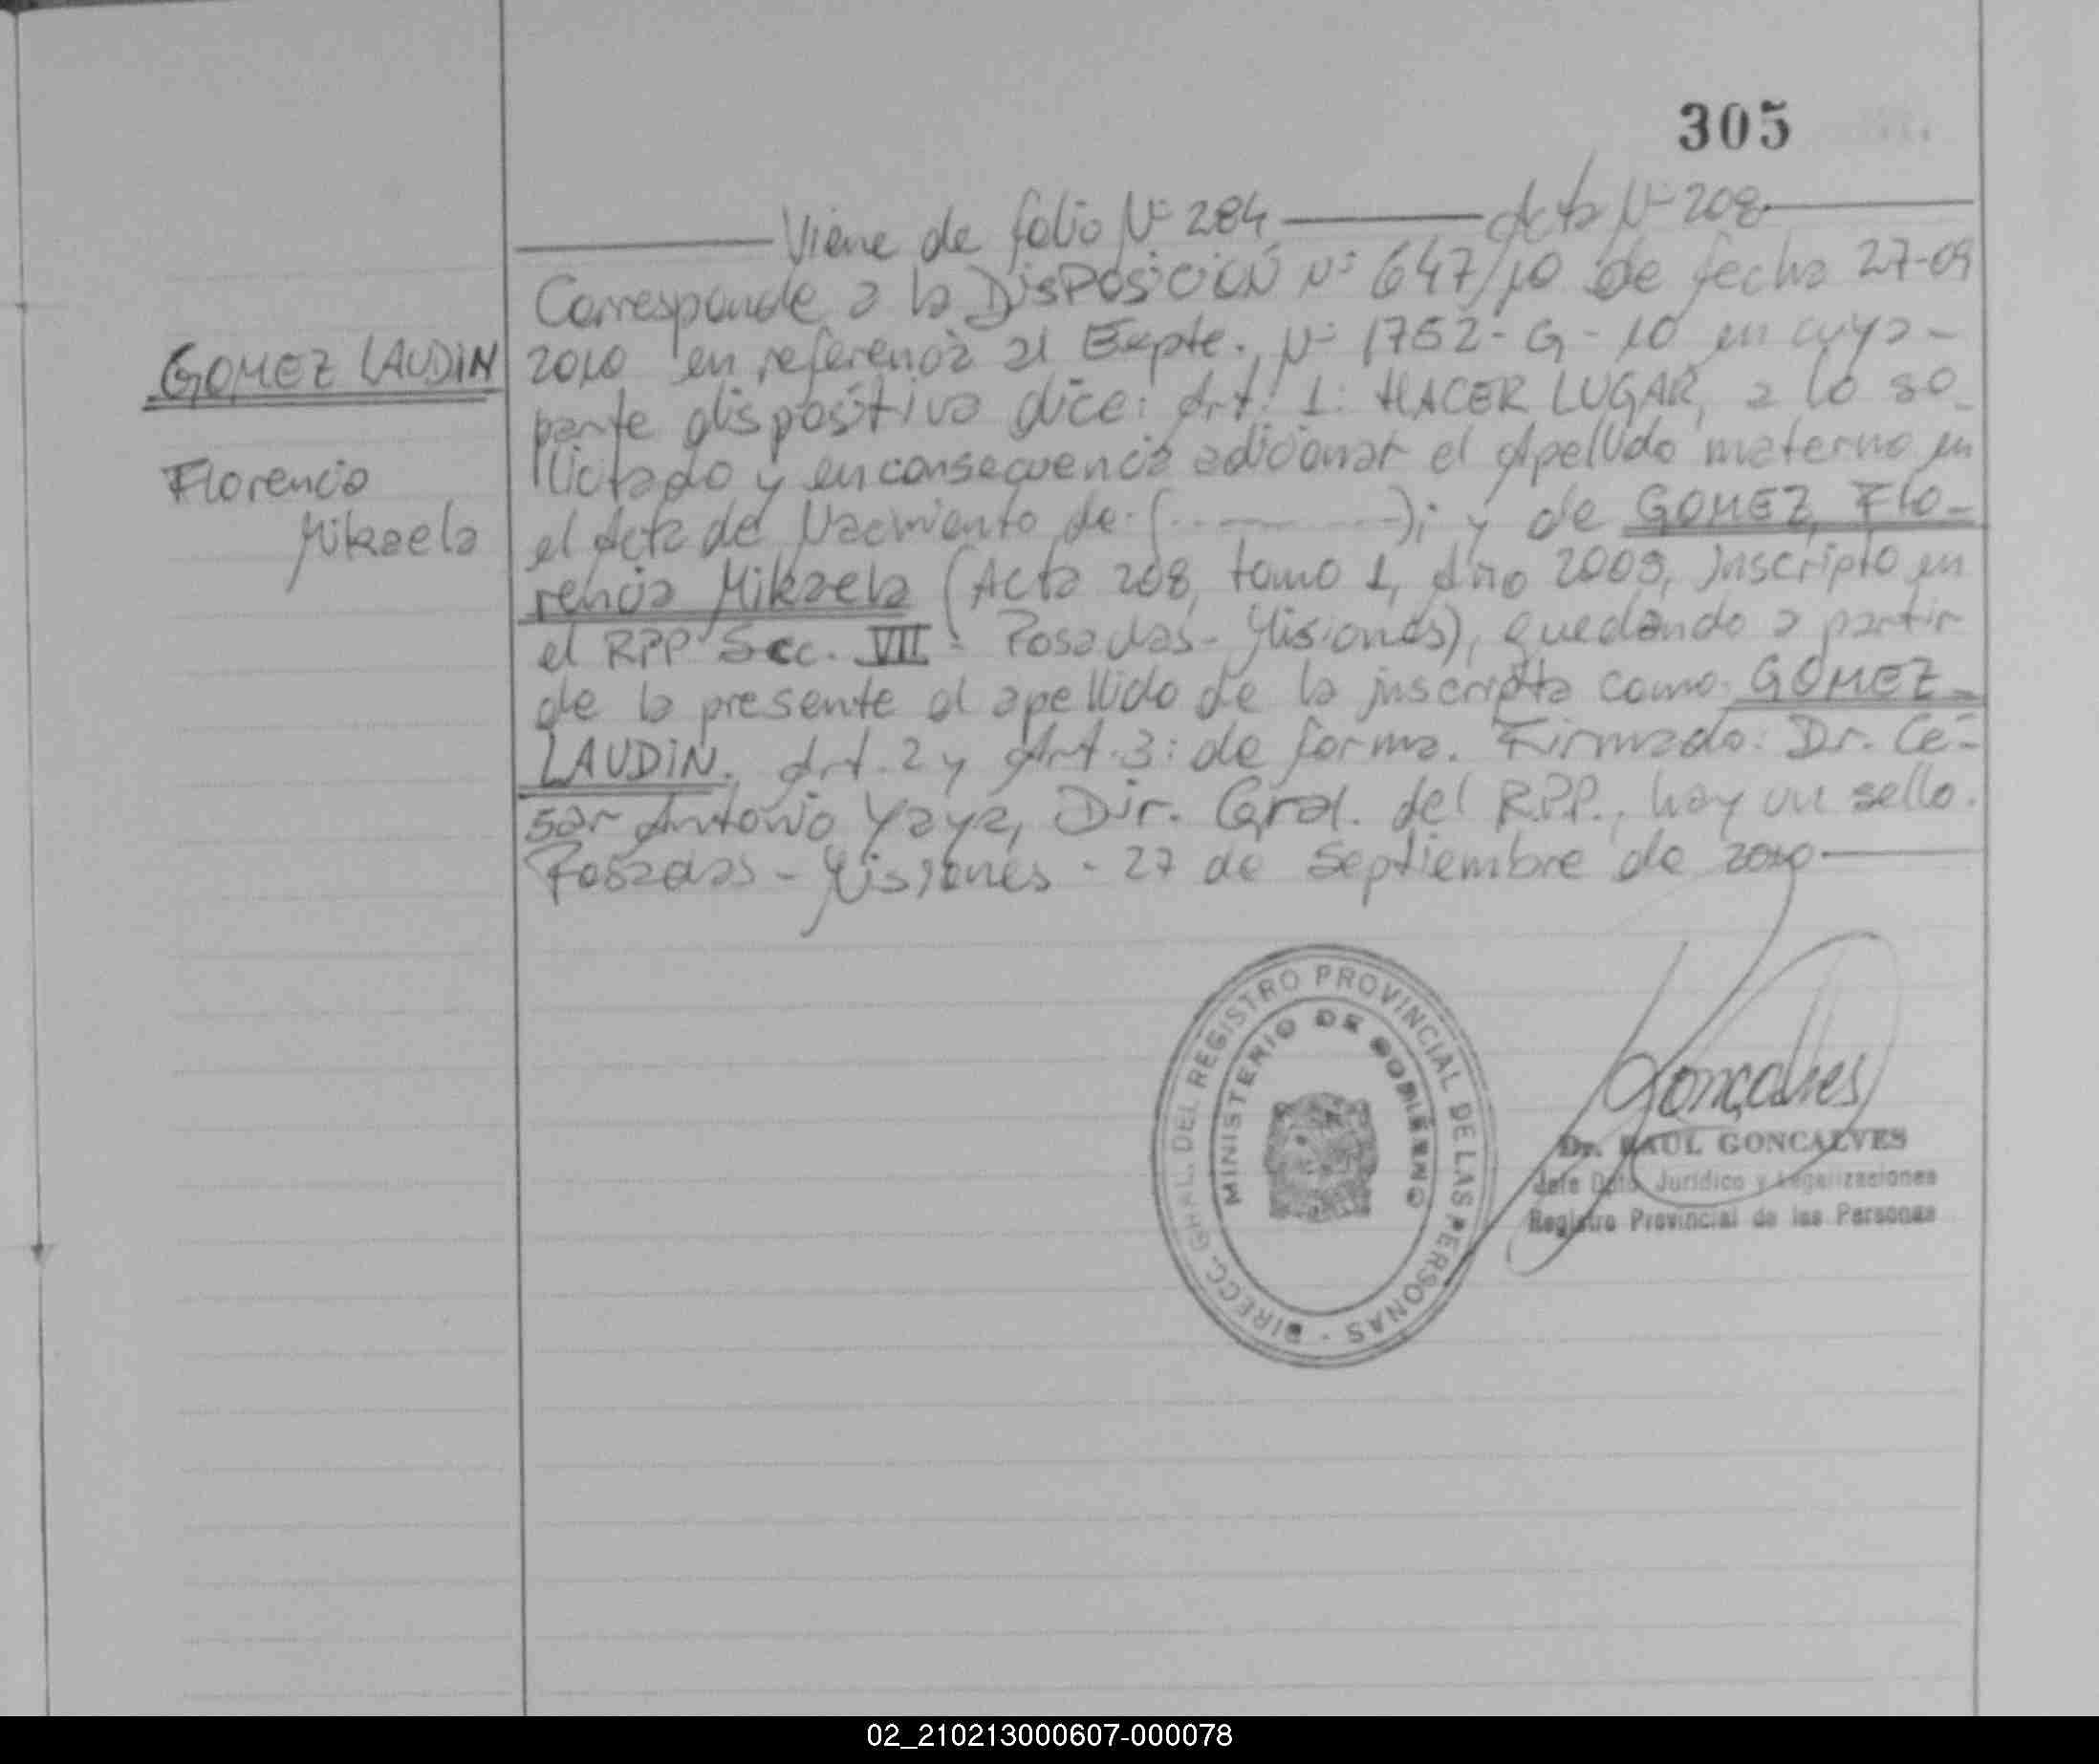 305
Viene de folio Nº 284 Acta Nº 208
Corresponde a la DISPOSICIÓN Nº 647/10 de fecha 27-09
GOMEZ LAUDIN
2010 en referencia al Expte. Nº 1752-G-10 en cuya -
parte dispositiva dice: Art. 1: HACER LUGAR, a lo so-
licitado y en consecuencia adicionar el Apellido materno en
Florencia
Mikaela
el Acta de Nacimiento de (...........); y de GOMEZ, Flo-
rencia Mikaela (Acta 208, tomo 1, Año 2009, Inscripto en
el RPP Secc. VII - Posadas - Misiones), quedando a partir
de la presente el apellido de la inscripta como GOMEZ
LAUDIN. Art. 2 y Art. 3: de forma. Firmado: Dr. Cé-
sar Antonio Yaya, Dir. Gral. del R.P.P., hay un sello.
Posadas - Misiones - 27 de Septiembre de 2010
DIRECC. GRAL. DEL REGISTRO PROVINCIAL DE LAS PERSONAS -
MINISTERIO DE GOBIERNO
Gonçalves
Dr. RAUL GONCALVES
Jefe Dpto. Jurídico y Legalizaciones
Registro Provincial de las Personas
02_210213000607-000078